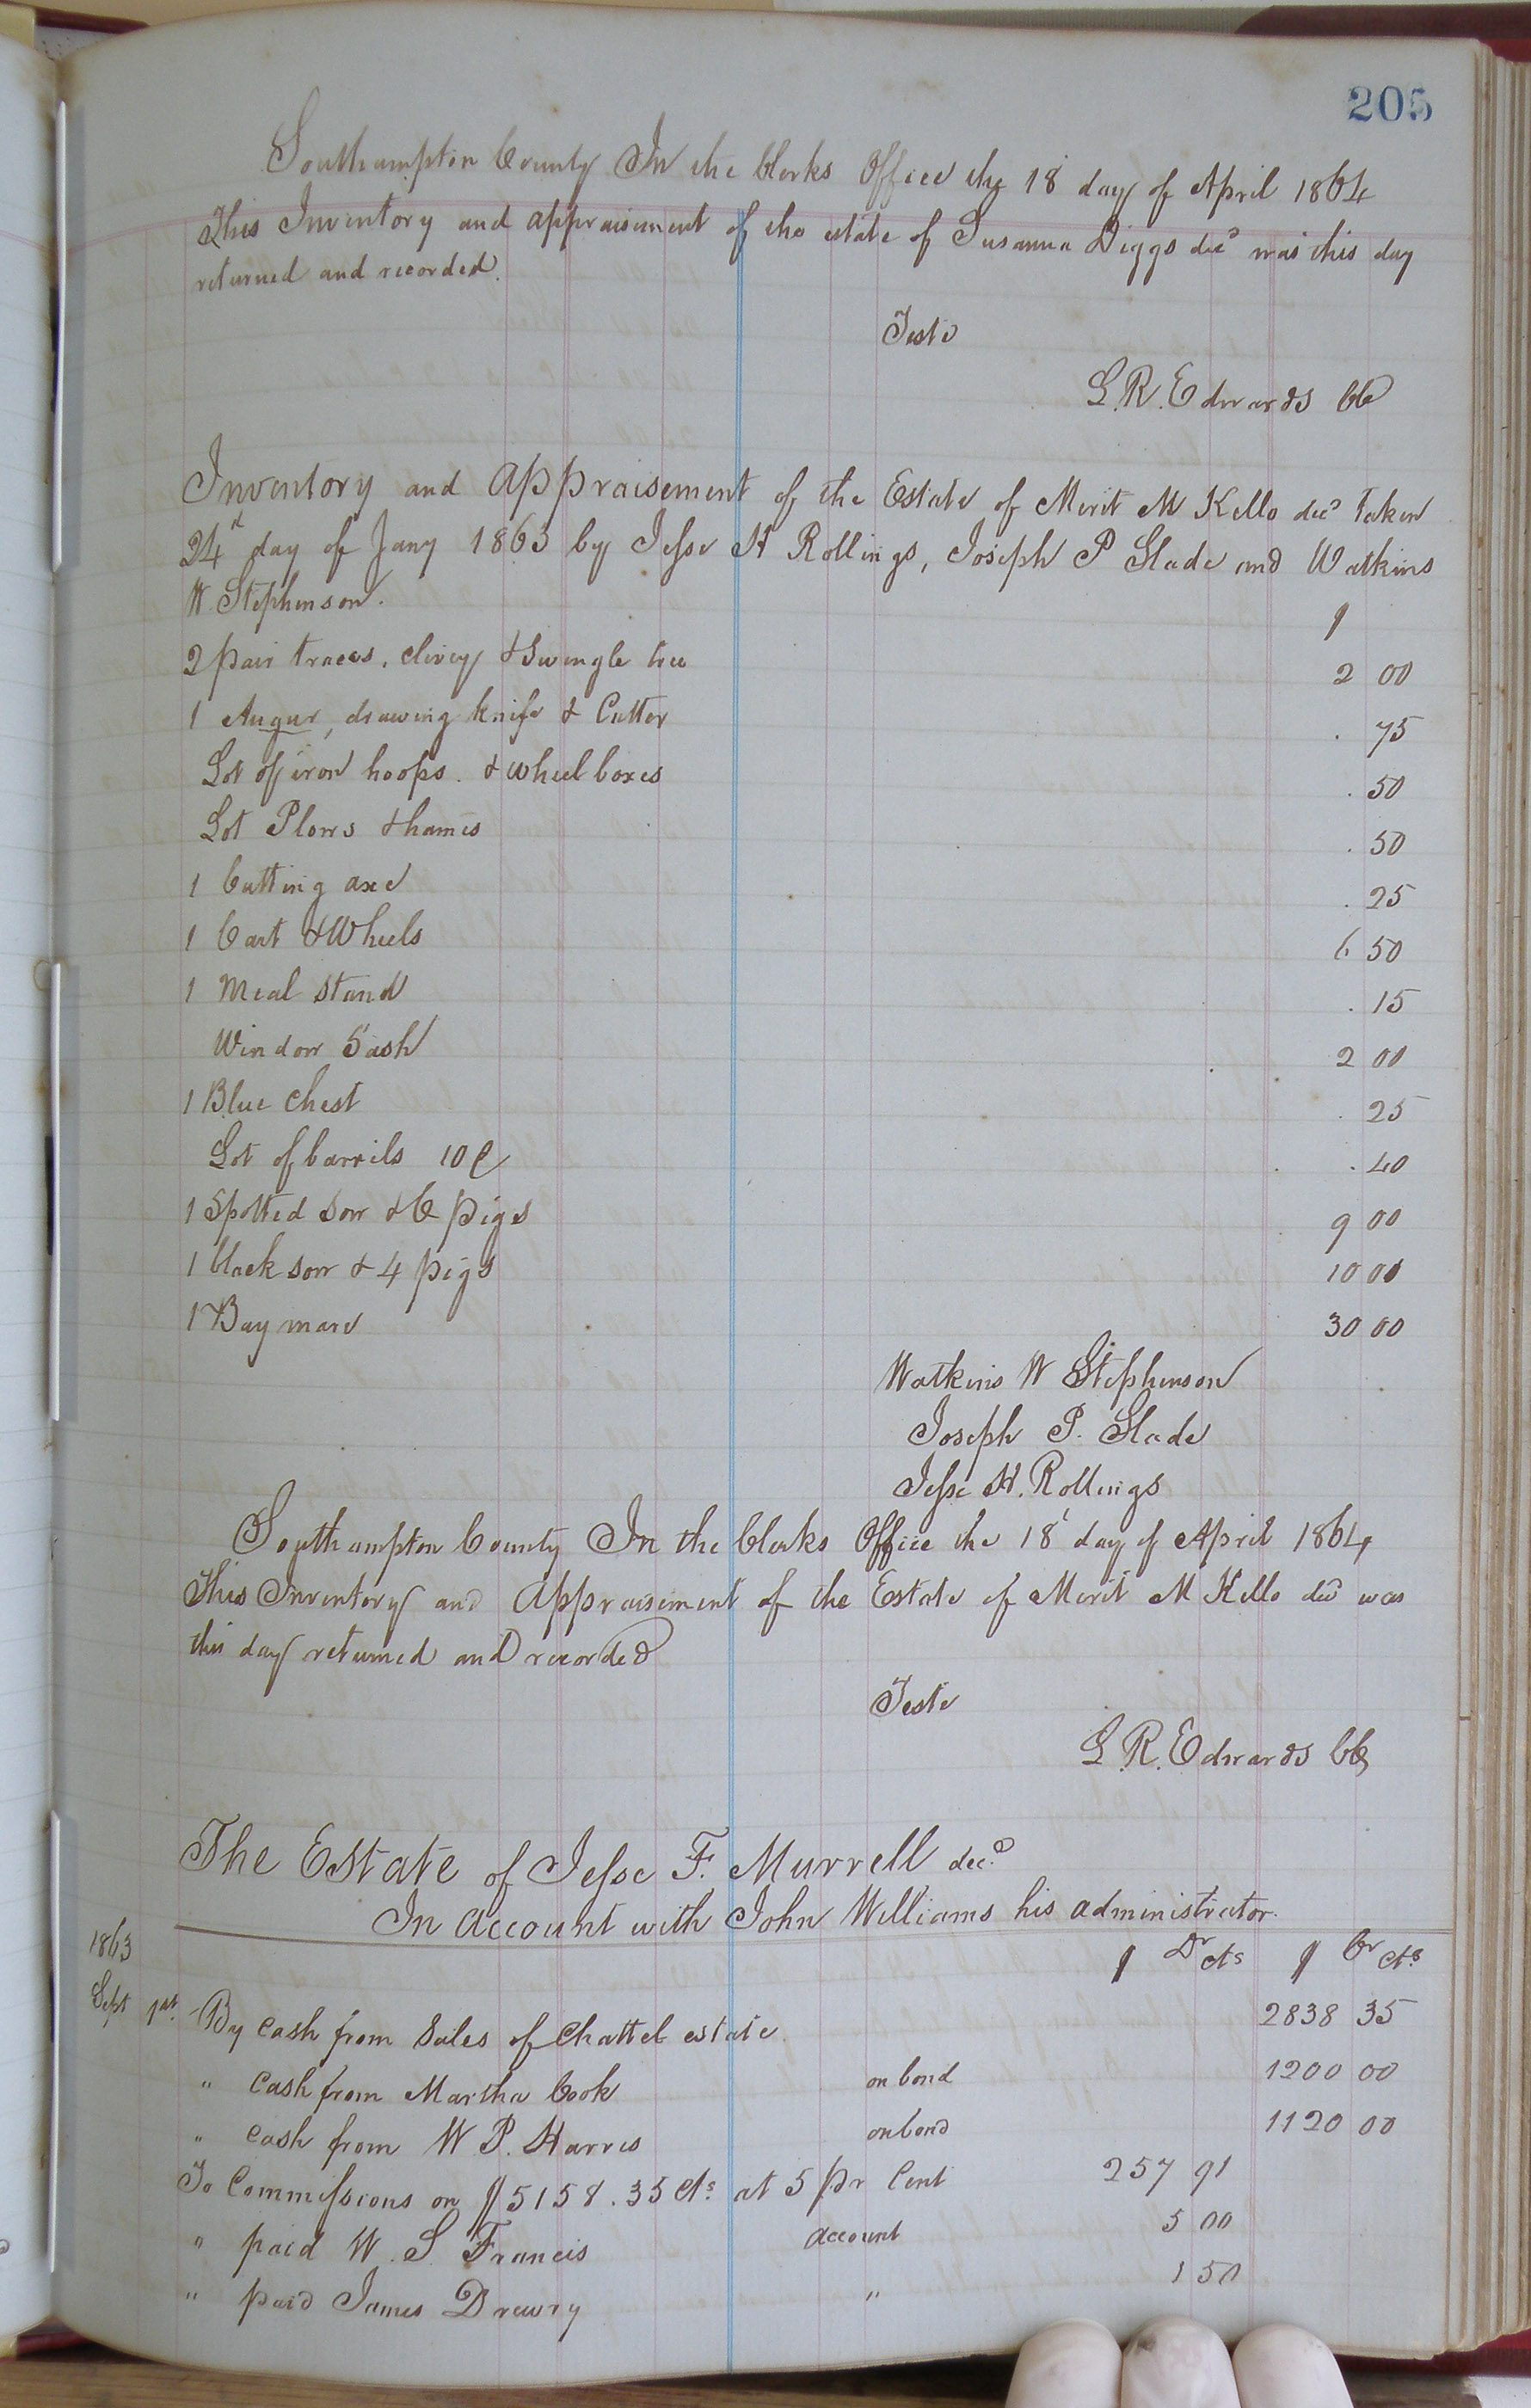 205
Southampton County In the Clerks Office the 18 day of April 1864
This Inventory and appraisement of the estate of Susanna Diggs decd was this day
returned and recorded.
Teste
L. R. Edwards CC
Inventory and Appraisement of the Estate of Merit M Kello decd taken
24d day of Jany 1863 by Jesse H Rollings, Joseph P Slade and Watkins
W Stephenson.
$
2 pair traces, clivey & swingle tree 2 00
1 Augur, drawing knife & Cutter . 75
Lot of iron hoops. & wheel boxes . 50
Lot Plows & hames . 50
1 Cutting axe . 25
1 Cart & Wheels 6 50
1 Meal stand . 15
Window Sash 2 00
1 Blue Chest . 25
Lot of barrils 10 . 40
1 Spotted Sow & 6 pigs 9 00
1 black sow & 4 pigs 10 00
1 Bay mare 30 00
Watkins W Stephenson
Joseph P. Slade
Jesse H. Rollings
Southampton County In the Clerks Office the 18 day of April 1864
This Inventory and Appraisement of the Estate of Merit M Kello decd was
this day returned and recorded
Teste
L. R. Edwards CC
The Estate of Jesse F. Murrell decd
In account with John Williams his administrator.
1863 $ Dr cts $ Cr cts
Sept 1st. By cash from Sales of Chattel estate. 2838 35
" Cash from Martha Cook on bond 1200 00
" Cash from W P. Harris on bond 1120 00
To Commissions on $5158.35 cts at 5 pr Cent 257 91
" paid W. S. Francis account 5 00
" paid James Drewry " 1 50